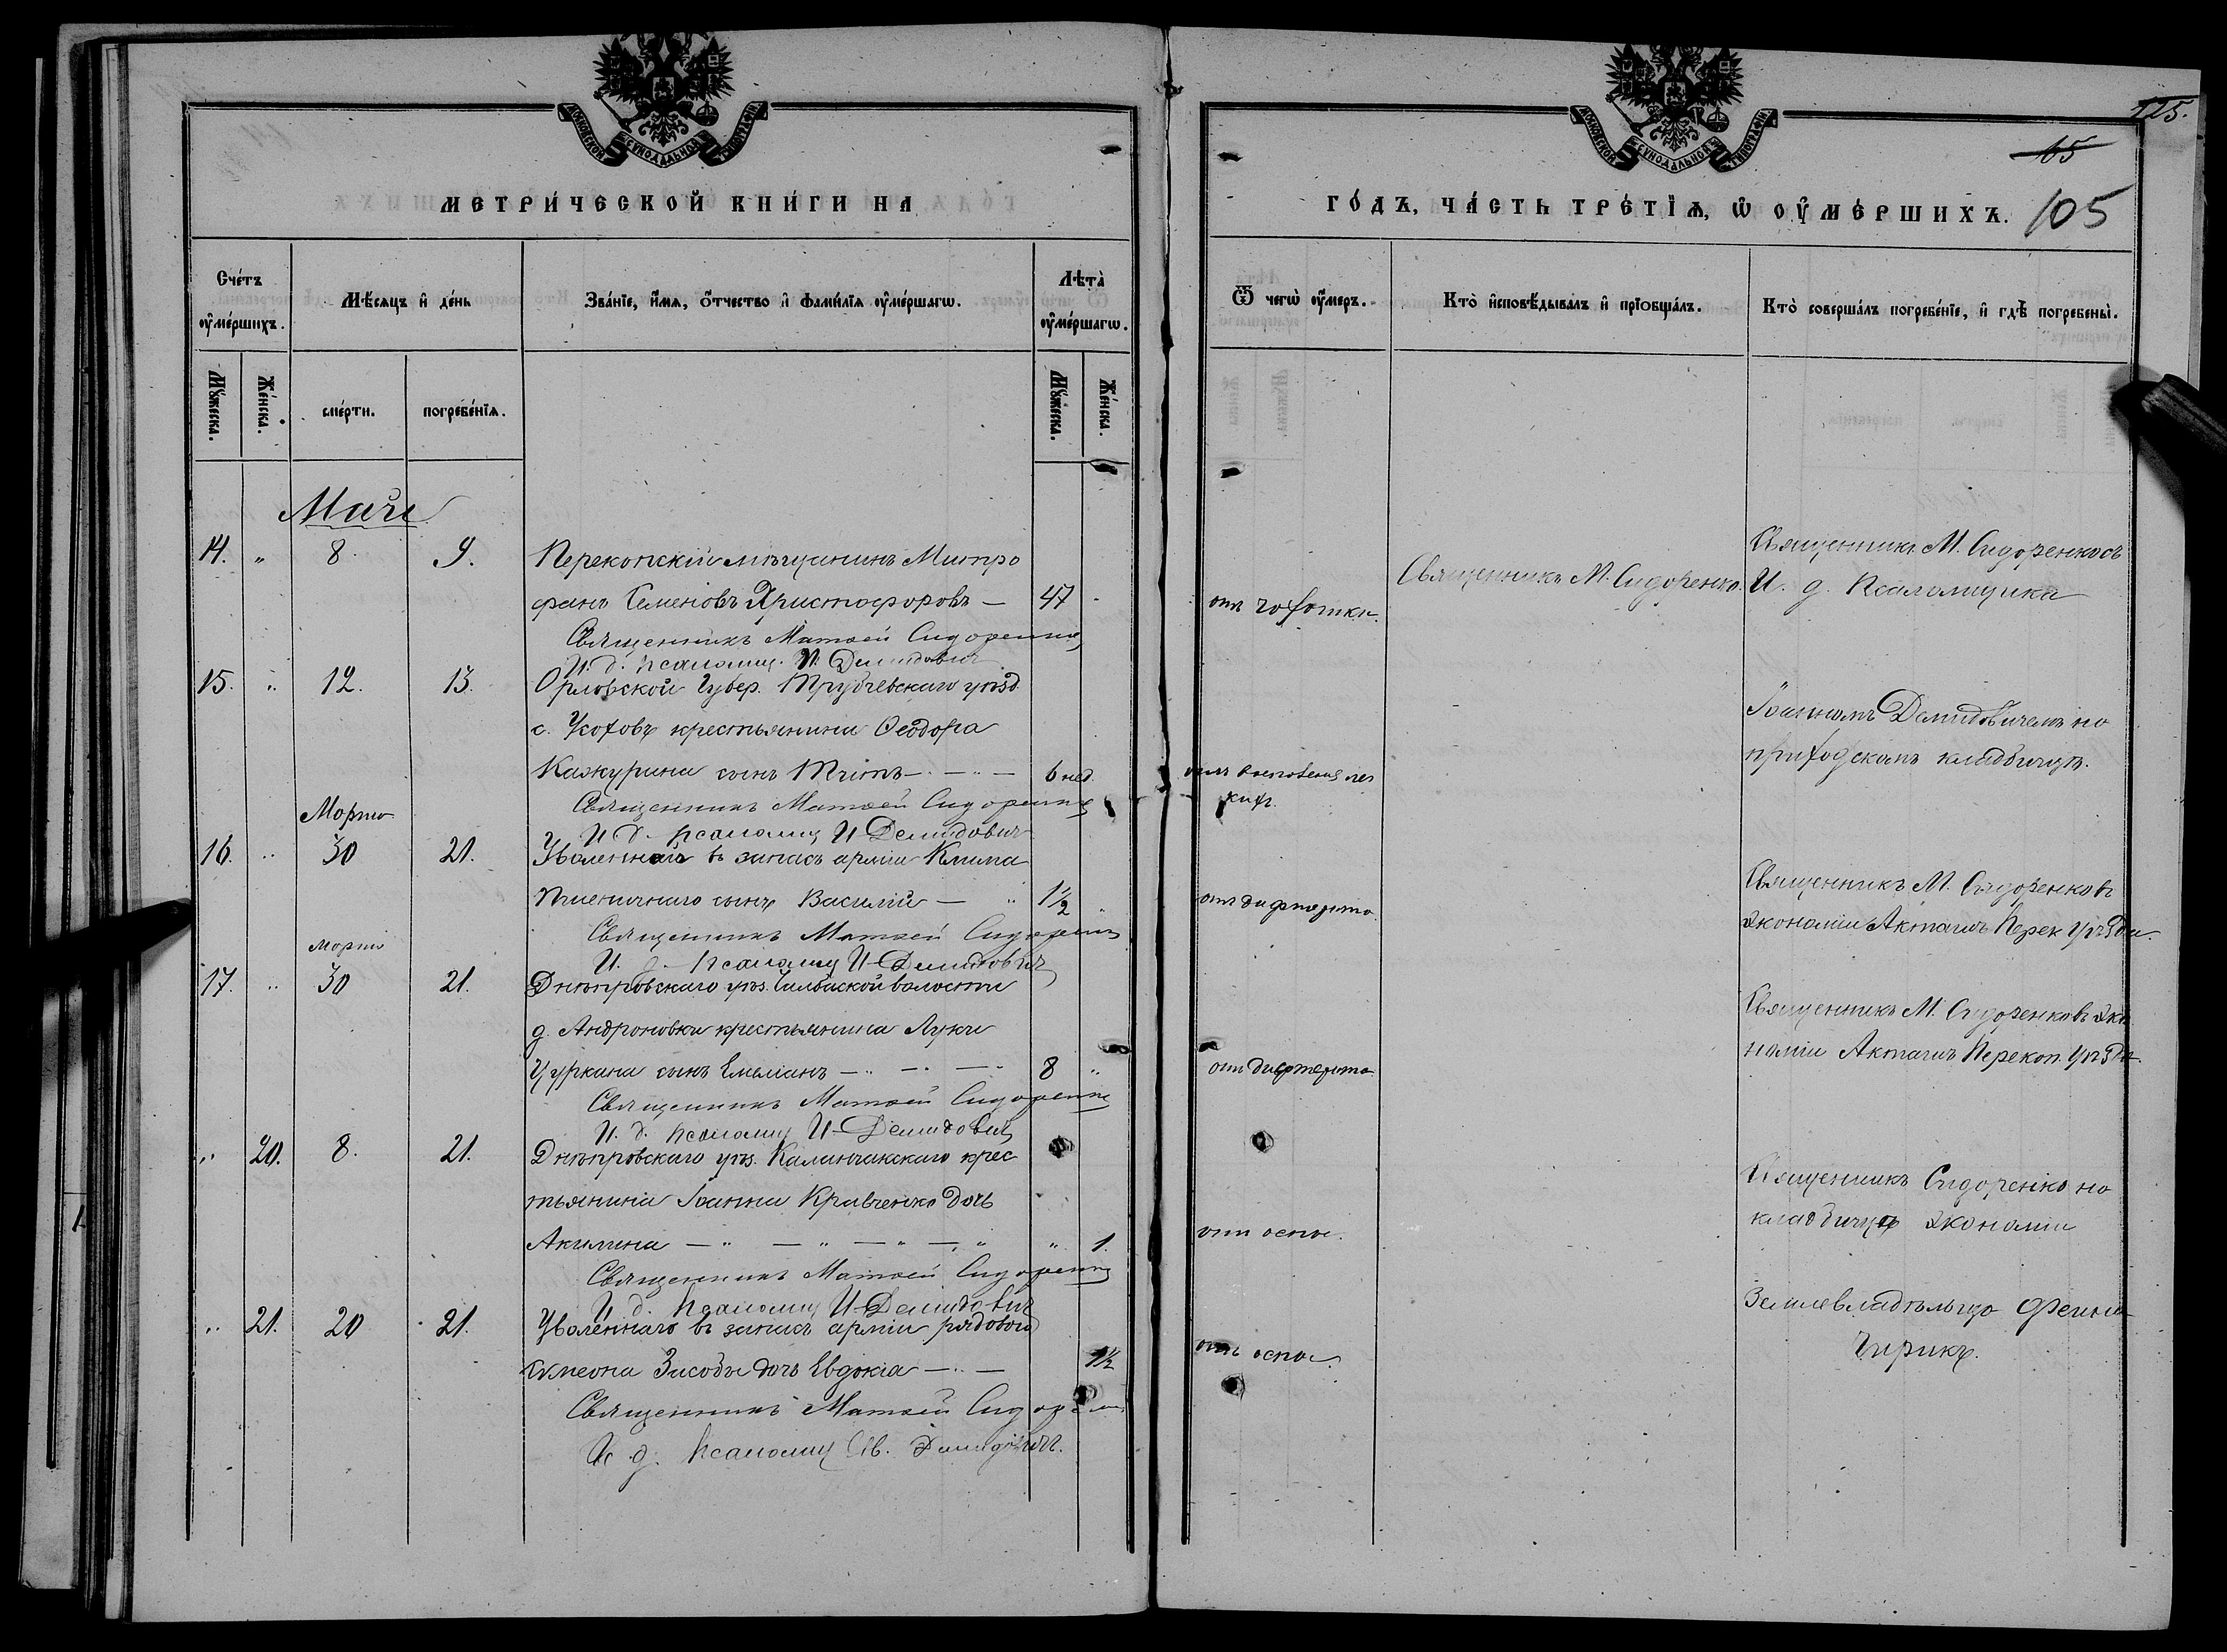 МОСКОВСКОЙ СѴНОДАЛЬНОЙ ТИПОГРАФІИ
МЕТРИ́ЧЕСКОЙ КНИ́ГИ НА
Сче́тъ
ᲂу҆ме́ршихъ.
Мѣ́сяцъ и҆ де́нь
Зва́нїе, и҆́мѧ, ѻ҆́тчество и҆ фами́лїѧ ᲂу҆ме́ршагѡ.
Лѣ̑та̀
ᲂу҆ме́ршагѡ.
Мꙋ́жеска.
Же́нска.
сме́рти.
погребе́нїѧ.
Мꙋ́жеска.
Же́нска.
Маія
14. „ 8. 9. Перекопскій мѣщанинъ Митро
фанъ Семеновъ Христофоровъ — 47
Священникъ Матѳей Сидоренко
И. д. псаломщ. И. Демидовичъ
15. „ 12. 13. Орловской Губер. Трубчевскаго уѣзд.
с. Усохъ крестьянина Ѳеодора
Кажурина сынъ Титъ — „ — 6 нед.
Священникъ Матѳей Сидоренко
И. д. псаломщ И Демидовичъ
Марта
16. „ 30 21. Уволеннаго въ запасъ арміи Клима
Пшеничнаго сынъ Василій — „ 1½
Священникъ Матѳей Сидоренко
И. д. псаломщ И Демидовичъ
марта
17. „ 30 21. Днѣпровскаго уѣз. Чалбаской волости
д. Андроновки крестьянина Луки
Цуркана сынъ Емеліанъ — „ — „ — „ 8 „
Священникъ Матѳей Сидоренко
И. д. псаломщ И Демидовичъ
„ 20. 8. 21. Днѣпровскаго уѣз. Каланчакскаго крес
тьянина Іоанна Кравченко дочь
Акилина — „ — „ — „ — „ „ 1.
Священникъ Матѳей Сидоренко
И. д. псаломщ И Демидовичъ
„ 21. 20 21. Уволеннаго въ запасъ арміи рядового
Симеона дочь Евдокія — „ — 1½
Священникъ Матѳей Сидоренко
И. д. псаломщ Ив. Демидовичъ.
МОСКОВСКОЙ СѴНОДАЛЬНОЙ ТИПОГРАФІИ
125.
65
105
ГО́ДЪ, ЧА́СТЬ ТРЕ́ТЇѦ, Ѡ҆ ОУ҆МЕ́РШИХЪ.
Ѿ чегѡ̀ ᲂу҆́меръ.
Кто̀ и҆сповѣ́дывалъ и҆ прїѡбща́лъ.
Кто̀ соверша́лъ погребе́нїе, и҆ гдѣ̀ погребены̀.
отъ чахотки.
Священникъ М. Сидоренко.
Священникъ М. Сидоренко съ
И. д. Псаломщика
Іоанномъ Демидовичемъ на
приходскомъ кладбищѣ.
отъ воспаленія лег
кихъ.
отъ дифтерита
Священникъ М. Сидоренко въ
экономіи Актачи Перек. Уѣзда.
отъ дифтерита
Священникъ М. Сидоренко въ эко
номіи Актачи Перекоп. Уѣзда.
отъ оспы.
Священникъ Сидоренко на
кладбищѣ экономіи
Землевладѣльца Фейна
отъ оспы.